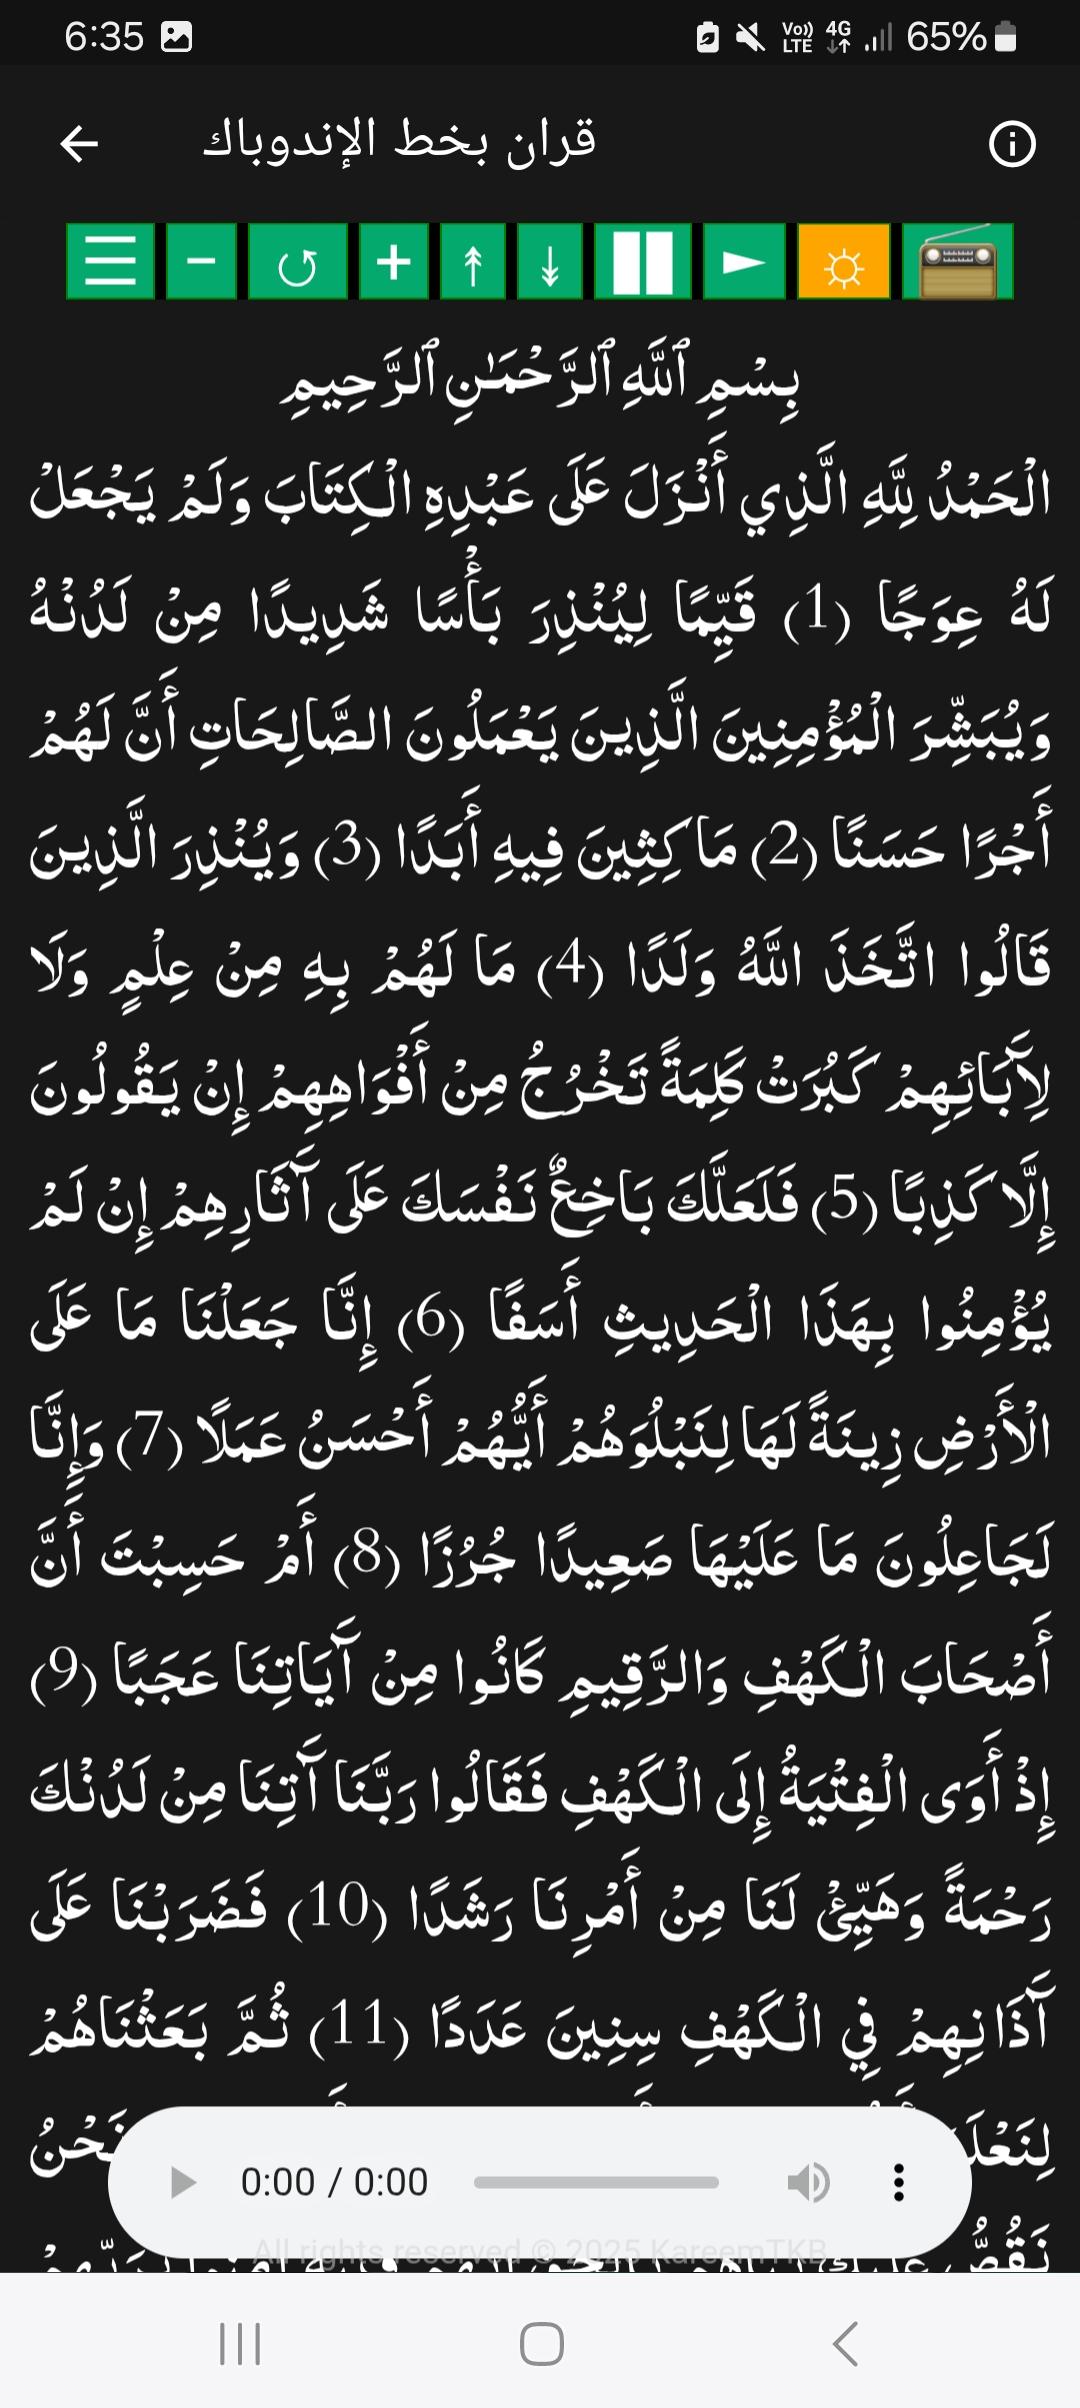 6:35
Vo)) LTE 4G 65%
قران بخط الإندوباك
بِسْمِ ٱللَّهِ ٱلرَّحْمَـٰنِ ٱلرَّحِيمِ
الْحَمْدُ لِلَّهِ الَّذِي أَنْزَلَ عَلَى عَبْدِهِ الْكِتَابَ وَلَمْ يَجْعَلْ
لَهُ عِوَجًا (1) قَيِّمًا لِيُنْذِرَ بَأْسًا شَدِيدًا مِنْ لَدُنْهُ
وَيُبَشِّرَ الْمُؤْمِنِينَ الَّذِينَ يَعْمَلُونَ الصَّالِحَاتِ أَنَّ لَهُمْ
أَجْرًا حَسَنًا (2) مَاكِثِينَ فِيهِ أَبَدًا (3) وَيُنْذِرَ الَّذِينَ
قَالُوا اتَّخَذَ اللَّهُ وَلَدًا (4) مَا لَهُمْ بِهِ مِنْ عِلْمٍ وَلَا
لِآبَائِهِمْ كَبُرَتْ كَلِمَةً تَخْرُجُ مِنْ أَفْوَاهِهِمْ إِنْ يَقُولُونَ
إِلَّا كَذِبًا (5) فَلَعَلَّكَ بَاخِعٌ نَفْسَكَ عَلَى آثَارِهِمْ إِنْ لَمْ
يُؤْمِنُوا بِهَذَا الْحَدِيثِ أَسَفًا (6) إِنَّا جَعَلْنَا مَا عَلَى
الْأَرْضِ زِينَةً لَهَا لِنَبْلُوَهُمْ أَيُّهُمْ أَحْسَنُ عَمَلًا (7) وَإِنَّا
لَجَاعِلُونَ مَا عَلَيْهَا صَعِيدًا جُرُزًا (8) أَمْ حَسِبْتَ أَنَّ
أَصْحَابَ الْكَهْفِ وَالرَّقِيمِ كَانُوا مِنْ آيَاتِنَا عَجَبًا (9)
إِذْ أَوَى الْفِتْيَةُ إِلَى الْكَهْفِ فَقَالُوا رَبَّنَا آتِنَا مِنْ لَدُنْكَ
رَحْمَةً وَهَيِّئْ لَنَا مِنْ أَمْرِنَا رَشَدًا (10) فَضَرَبْنَا عَلَى
آذَانِهِمْ فِي الْكَهْفِ سِنِينَ عَدَدًا (11) ثُمَّ بَعَثْنَاهُمْ
نَحْنُ
0:00 / 0:00
All rights reserved © 2025 KareemTKB
نَقُصُّ